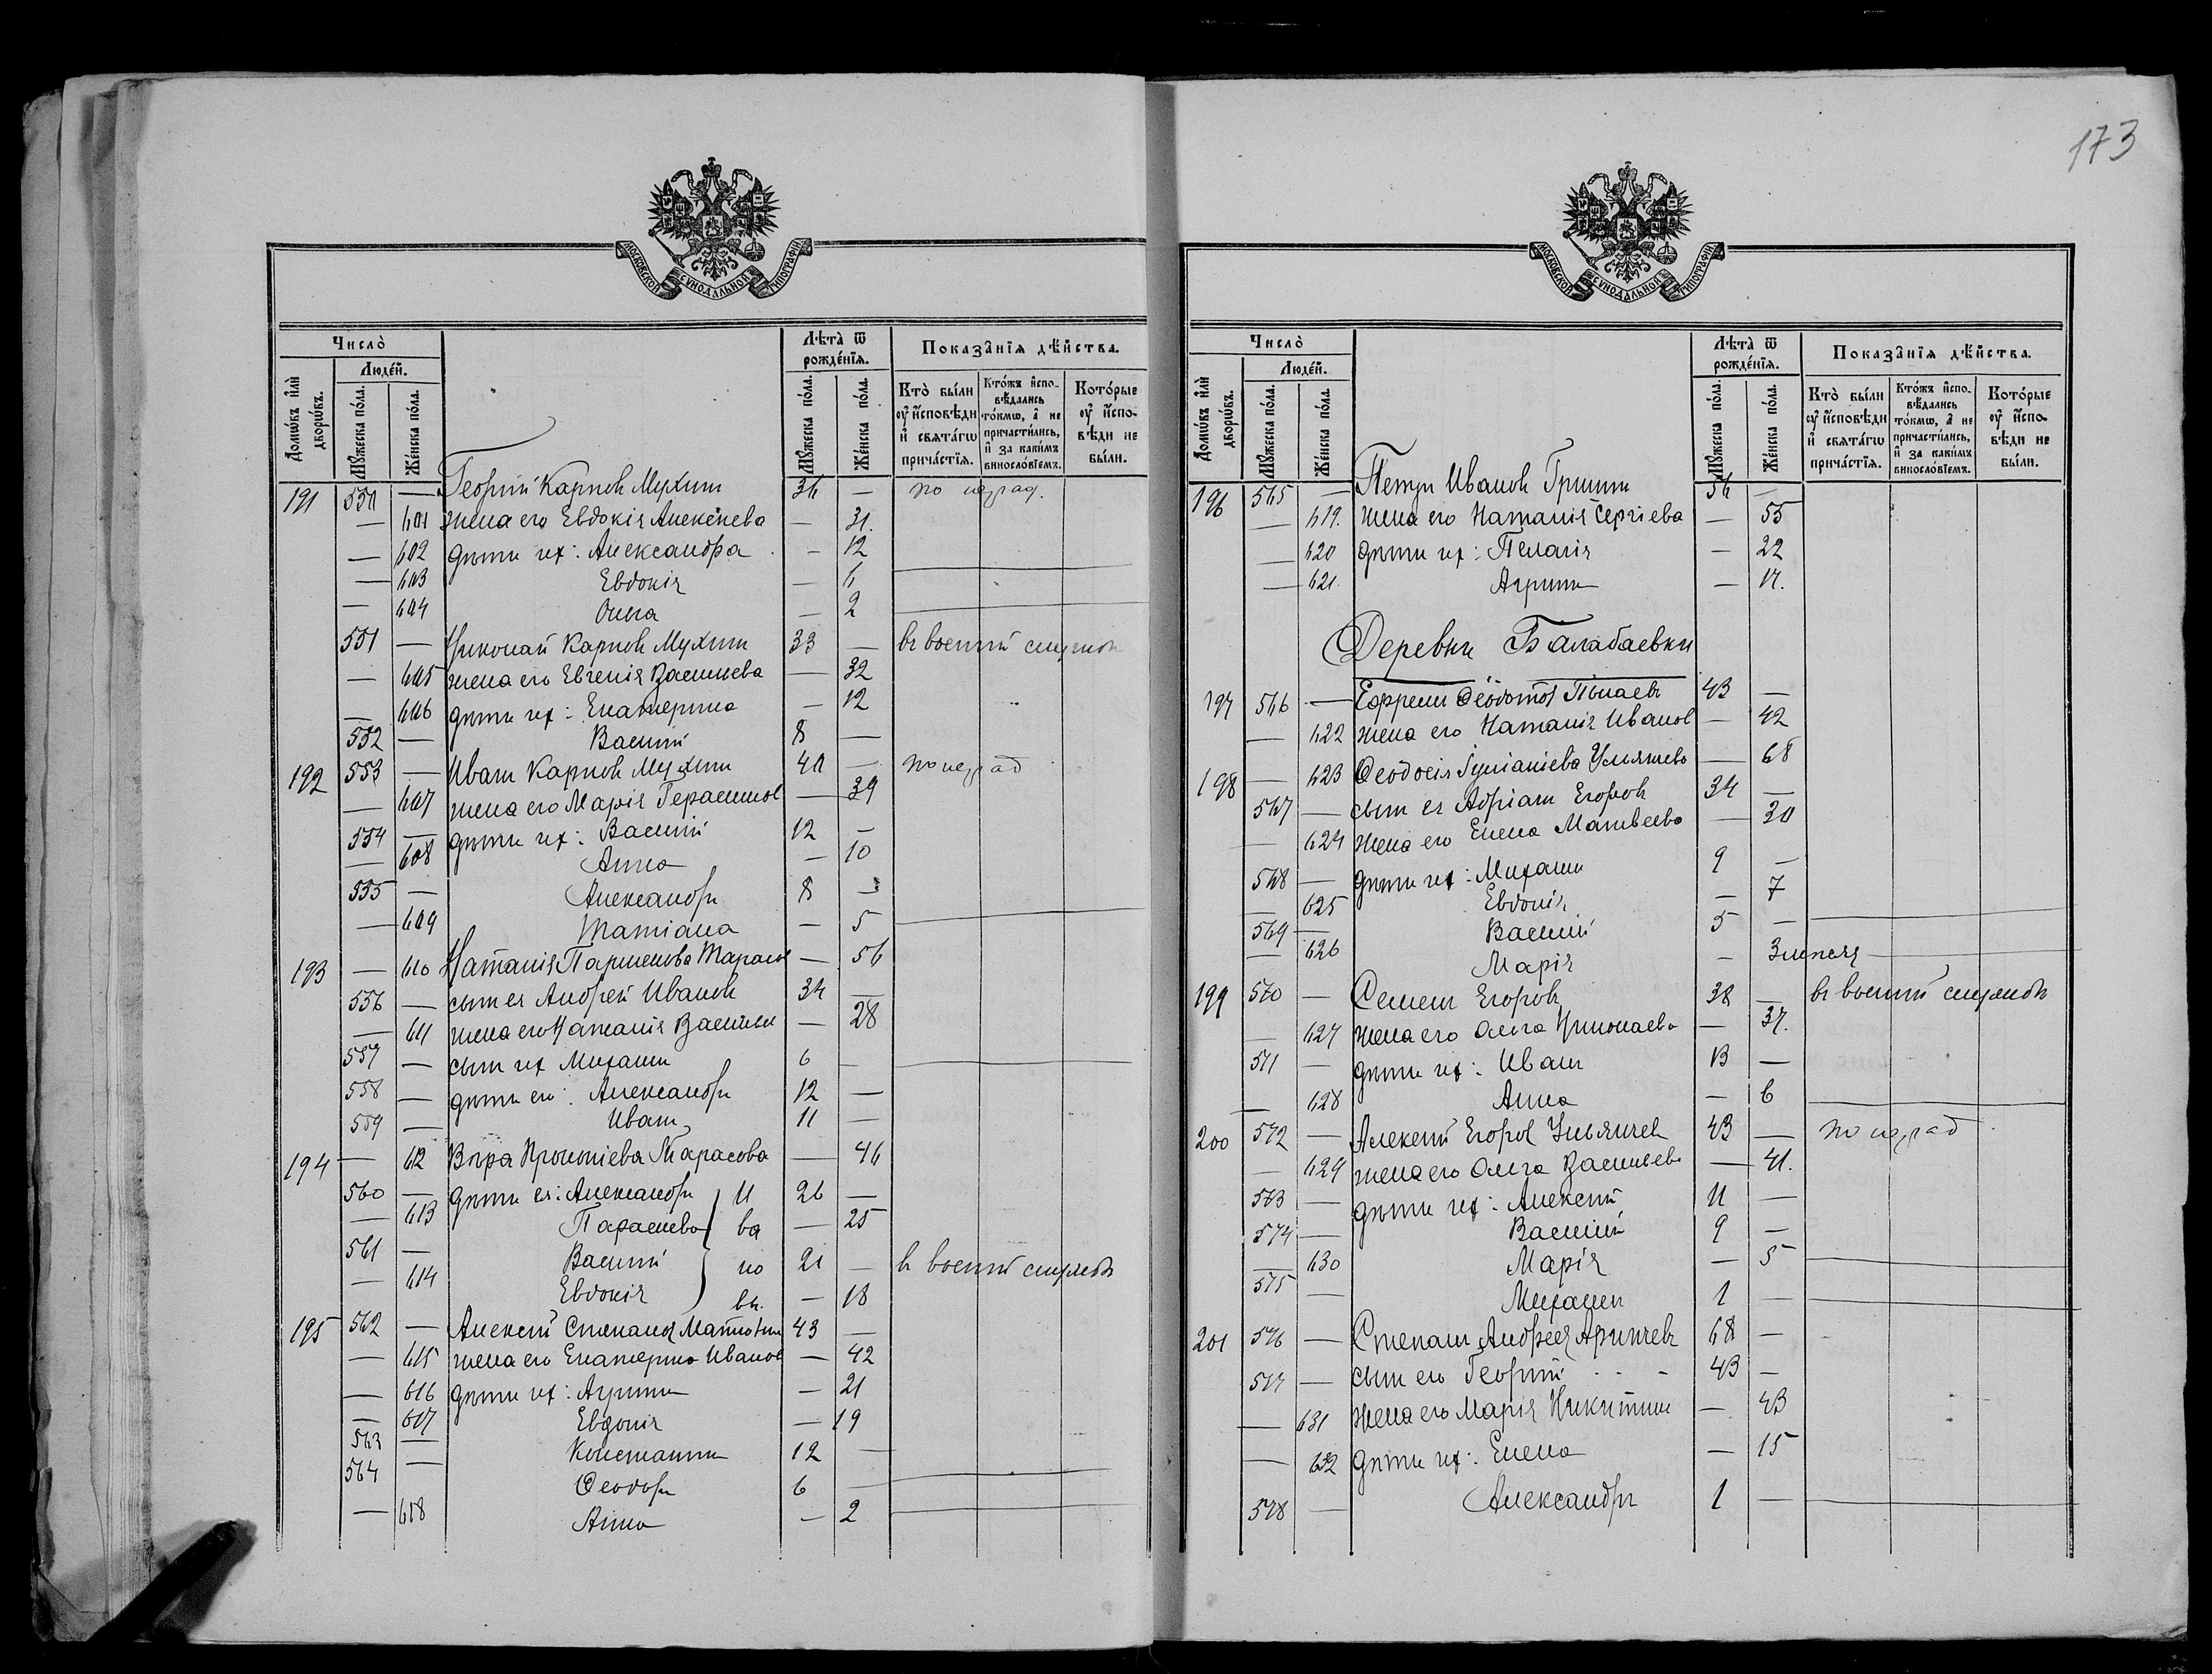 173
МОСКОВСКОЙ СѴНОДАЛЬНОЙ ТИПОГРАФІИ
Число̀
Лѣта̀ ѿ рожде́нїѧ.
Показа̑нїѧ дѣ́йства.
Люде́й.
Домѡ́въ и҆лѝ дворѡ́въ.
Мꙋ́жеска по́ла.
Же́нска по́ла.
Мꙋ́жеска по́ла.
Же́нска по́ла.
Кто̀ бы́ли ᲂу҆ и҆спо́вѣди и҆ свѧта́гѡ прича́стїѧ.
Кто́жъ и҆спо­вѣ́дались то́кмѡ, а҆ не причасти́лись, и҆ за каки́мъ винословїемъ.
Кото́рые ᲂу҆ и҆спо­вѣди не бы́ли.
191 550 — Георгій Карповъ Мухинъ 36 — по нерад.
— 601 жена его Евдокія Алексѣева — 31.
— 602 дѣти ихъ: Александра — 12
— 603 Евдокія — 6
— 604 Ольга — 2
551 — Николай Карповъ Мухинъ 33 — въ военной службѣ
— 605 жена его Евгенія Васильева — 32
— 606 дѣти ихъ: Екатерина — 12
552 — Василій 8 —
192 553 — Иванъ Карповъ Мухинъ 40 — по нерад
— 607 жена его Марія Герасимов — 39
554 — дѣти ихъ: Василій 12 —
— 608 Анна — 10
555 — Александръ 8 —
— 609 Татіана — 5
193 — 610 Наталія Парменова Тарасов — 56
556 — сынъ ея Андрей Ивановъ 34 —
— 611 жена его Наталія Васильев — 28
557 — сынъ ихъ Михаилъ 6 —
558 — дѣти его: Александръ 12 —
559 — Иванъ 11 —
194 — 612 Вѣра Прокопіева Тарасова — 46
560 — дѣти ея: Александръ И 26 —
— 613 Параскева ва — 25
561 — Василій но 21 — въ военной службѣ
— 614 Евдокія вы. — 18
195 562 — Алексѣй Степановъ 43 —
— 615 жена его Екатерина Иванов — 42
— 616 дѣти ихъ: Агрипин — 21
— 617 Евдокія — 19
563 — Константинъ 12 —
564 — Ѳеодоръ 6 —
— 618 Анна — 2
Число̀
Лѣта̀ ѿ рожде́нїѧ.
Показа̑нїѧ дѣ́йства.
Люде́й.
Домѡ́въ и҆лѝ дворѡ́въ.
Мꙋ́жеска по́ла.
Же́нска по́ла.
Мꙋ́жеска по́ла.
Же́нска по́ла.
Кто̀ бы́ли ᲂу҆ и҆спо́вѣди и҆ свѧта́гѡ прича́стїѧ.
Кто́жъ и҆спо­вѣ́дались то́кмѡ, а҆ не причасти́лись, и҆ за каки́мъ винословїемъ.
Кото́рые ᲂу҆ и҆спо­вѣди не бы́ли.
МОСКОВСКОЙ СѴНОДАЛЬНОЙ ТИПОГРАФІИ
196 565 — Петръ Ивановъ Гришин 56 —
— 619. жена его Наталія Сергіева — 55
— 620 дѣти ихъ: Пелагія — 22
— 621. Агрипин — 17.
Деревни Балабаевки
197 566 — Ефремъ Ѳеодотов 43 —
— 622 жена его Наталія Иванов — 42
198 — 623 Ѳеодосія Іуліаніева Ульяшева — 68
567 — сынъ ея Адріанъ Егоровъ 34 —
— 624 жена его Елена Матвеева — 30
568 — дѣти ихъ: Михаилъ 9 —
— 625 Евдокія — 7
569 — Василій 5 —
— 626 Марія — 3 месяц
199 570 — Семенъ Егоровъ 38 — въ военной службѣ
— 627 жена его Ольга Николаева — 37.
571 — дѣти ихъ: Иванъ 13 —
— 628 Анна — 6
200 572 — Алексѣй Егоров Ульяшев 43 — по нерад
— 629 жена его Ольга Васильева — 41.
573 — дѣти ихъ: Алексѣй 11 —
574 — Василій 9 —
— 630 Марія — 5
575 — Михаилъ 1 —
201 576 — Степанъ Андреев 68 —
577 — сынъ его Георгій 43 —
— 631 жена его Марія Никитин — 43
— 632 дѣти ихъ: Елена — 15
578 — Александръ 1 —